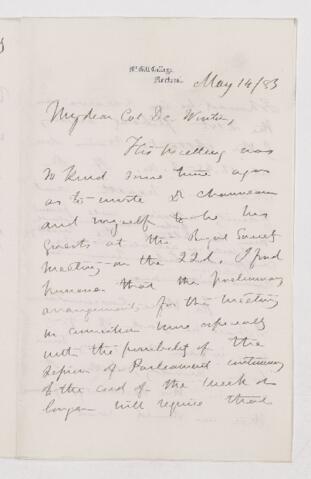 McGill College,
Montreal.
May 14/83
My dear Col De Winton,
His Excellency was
so kind some time ago
as to invite Dr Chauveau
and myself to be his
guests at the Royal Society
meeting on the 22d. I find
however that the preliminary
arrangements for this meeting
in connection more especially
with the possibility of the
Session of Parliament continuing
to the end of the week or
longer will require that